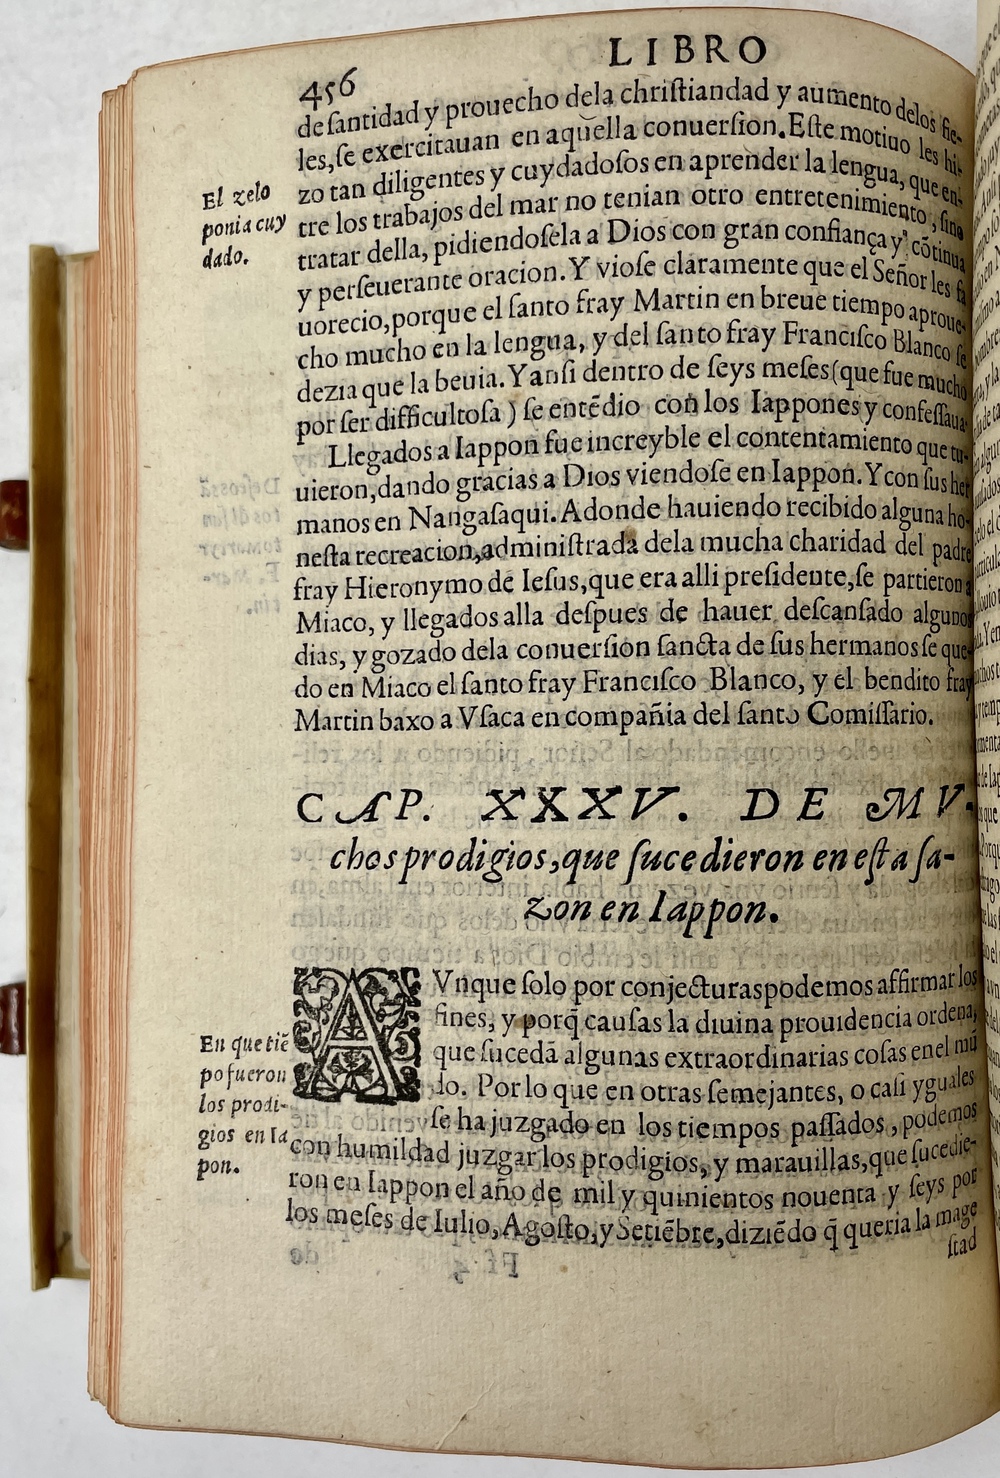 LIBRO
456
de ſantidad y prouecho dela chriſtiandad y aumento delos fie-
les, ſe exercitauan en aquella conuerſion. Eſte motiuo les hi-
El zelo
ponia cuy
dado.
zo tan diligentes y cuydadoſos en aprender la lengua, que en-
tre los trabajos del mar no tenian otro entretenimiento, ſino
tratar della, pidiendoſela a Dios con gran confiança y cõtinua
y perſeuerante oracion. Y vioſe claramente que el Señor les fa
uorecio, porque el ſanto fray Martin en breue tiempo aproue-
cho mucho en la lengua, y del ſanto fray Franciſco Blanco ſe
dezia que la beuia. Y anſi dentro de ſeys meſes (que fue mucho
por ſer difficultoſa) ſe entẽdio con los Iappones y confeſſaua.
Llegados a Iappon fue increyble el contentamiento que tu-
uieron, dando gracias a Dios viendoſe en Iappon. Y con ſus her
manos en Nangaſaqui. Adonde hauiendo recibido alguna ho-
neſta recreacion, adminiſtrada dela mucha charidad del padre
fray Hieronymo de Ieſus, que era alli preſidente, ſe partieron a
Miaco, y llegados alla deſpues de hauer deſcanſado algunos
dias, y gozado dela conuerſion ſancta de ſus hermanos ſe que-
do en Miaco el ſanto fray Franciſco Blanco, y el bendito fray
Martin baxo a Vſaca en compañia del ſanto Comiſſario.
CAP. XXXV. DE MV-
chos prodigios, que ſucedieron en eſta ſa-
zon en Iappon.
AVnque ſolo por conjecturas podemos affirmar los
fines, y porq̃ cauſas la diuina prouidencia ordena,
que ſucedã algunas extraordinarias coſas enel mũ
do. Por lo que en otras ſemejantes, o caſi yguales
ſe ha juzgado en los tiempos paſſados, podemos
En que tiẽ
po fueron
los prodi-
gios en Ia
pon.
con humildad juzgar los prodigios, y marauillas, que ſucedie-
ron en Iappon el año de mil y quinientos nouenta y ſeys por
los meſes de Iulio, Agoſto, y Setiẽbre, diziẽdo q̃ queria la mage
ſtad